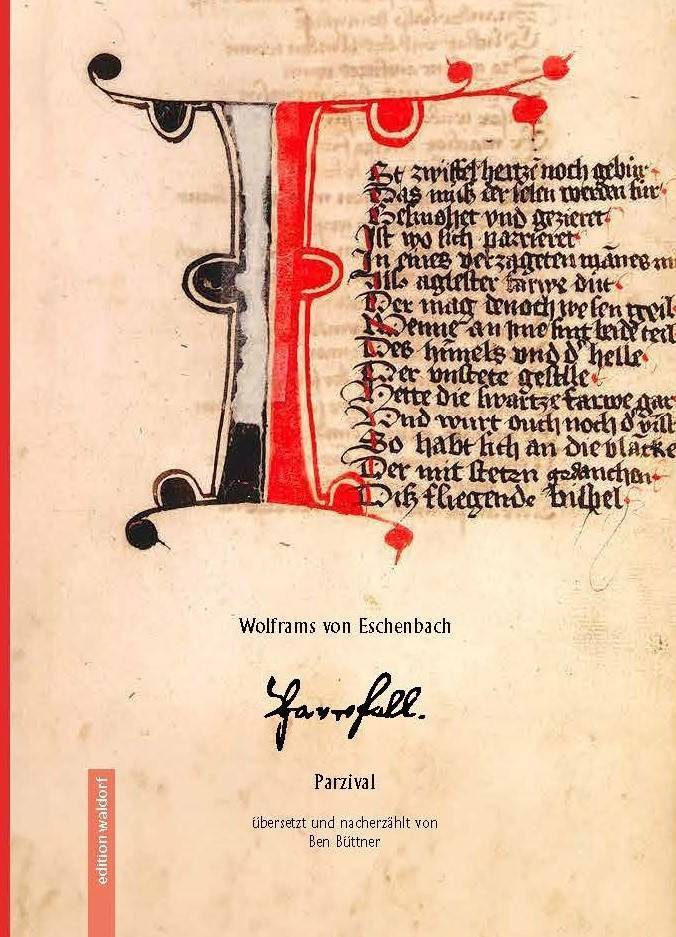 I
St zwiffel hertzē noch gebur·
Das muß der selen werden sur·
Gesmohet vnd gezieret·
Ist wo sich parrieret·
In eines verzageten mānes
Als aglester farwe dut·
Der mag denoch wesen geil
Wenne an ime sint beide teil
Des himels vnd d' helle·
Der vnstete geselle·
Hette die swartze farwe gar
Vnd wurt ouch noch d'
So habt sich an die blacke
Der mit steten gedanchen·
Diß fliegende bispel·
Wolframs von Eschenbach
Parcifall.
Parzival
übersetzt und nacherzählt von
Ben Büttner
edition waldorf